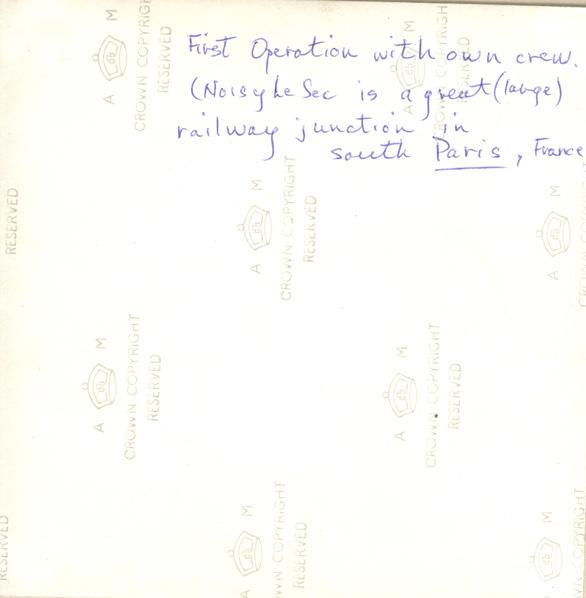 First Operation with own crew.
(Noisy Le Sec is a great (large)
railway junction in
south Paris, France
A M
CROWN COPYRIGHT
RESERVED
RESERVED
A M
CROWN COPYRIGHT
RESERVED
A M
CROWN COPYRIGHT
RESERVED
A M
CROWN COPYRIGHT
RESERVED
A M
CROWN COPYRIGHT
RESERVED
A M
RESERVED
A M
CROWN COPYRIGHT
RESERVED
A M
CROWN COPYRIGHT